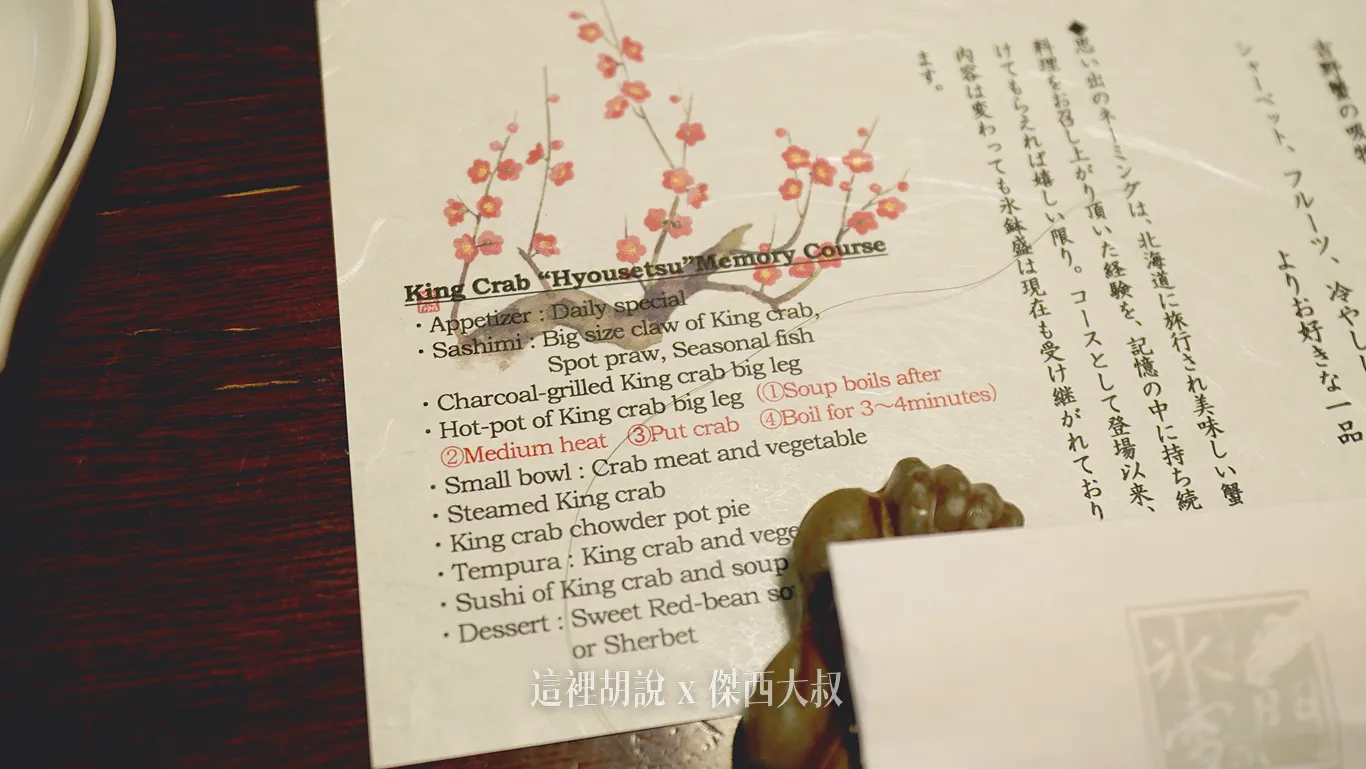 King Crab “Hyousetsu”Memory Course
・Appetizer : Daily special
・Sashimi : Big size claw of King crab,
Spot praw, Seasonal fish
・Charcoal-grilled King crab big leg
・Hot-pot of King crab big leg (①Soup boils after
②Medium heat ③Put crab ④Boil for 3～4minutes)
・Small bowl : Crab meat and vegetable
・Steamed King crab
・King crab chowder pot pie
・Tempura : King crab and vege
・Sushi of King crab and soup
・Dessert : Sweet Red-bean so
or Sherbet
吉野蟹の吸物
シャーベット、フルーツ、冷やし
よりお好きな一品
◆思い出のネーミングは、北海道に旅行され美味しい蟹
料理をお召し上がり頂いた経験を、記憶の中に持ち続
けてもらえれば嬉しい限り。コースとして登場以来、
内容は変わっても氷鉢盛は現在も受け継がれており
ます。
氷雪の門
這裡胡說 x 傑西大叔